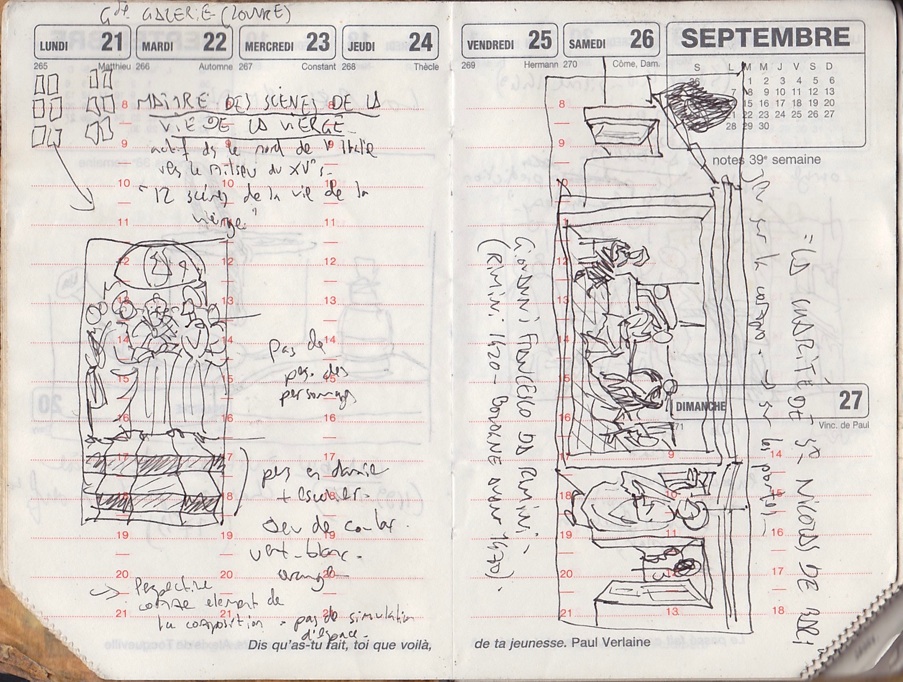 Gde GALERIE (LOUVRE)
LUNDI 21
MARDI 22
MERCREDI 23
JEUDI 24
265 Matthieu
266 Automne
267 Constant
268 Thècle
8
MAITRE DES SCÈNES DE LA
VIE DE LA VIERGE
9
actif ds le nord de l'Italie
vers le milieu du XVe
10
"12 scènes de la vie de la
vierge"
11
12
13
14
pas de
pers. des
personnages
15
16
17
pers en damier
+ escalier.
18
Jeu de couleur.
vert-blanc.
19
orangé
20
Perspective
comme element de
la composition - pas de simulation
d'espace.
21
Dis qu'as-tu fait, toi que voilà,
VENDREDI 25
SAMEDI 26
SEPTEMBRE
269 Hermann
270 Côme, Dam.
S L M M J V S D
36 1 2 3 4 5 6
7 8 9 10 11 12 13
15 16 17 18 19 20
21 22 23 24 25 26 27
28 29 30
notes 39e semaine
8
9
10
11
12
13
14
15
16
17
18
19
20
21
GIOVANNI FRANCESCO DA RIMINI -
(RIMINI 1420 - BOLOGNE avant 1470).
"LA CHARITÉ DE St. NICOLAS DE BARI
DIMANCHE 27
271 Vinc. de Paul
9
14
10
13
18
de ta jeunesse. Paul Verlaine